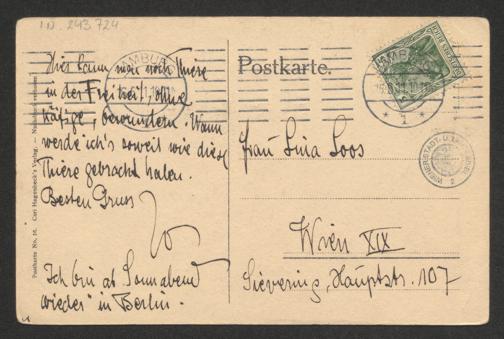 IN. 243.724
Hier kann man noch Thiere
in der Freiheit, ohne
Käfige, bewundern. Wann
werde ich's soweit wie diese
Thiere gebracht haben.
Besten Gruss
Ich bin ab Sonnabend
wieder in Berlin.
Postkarte.
HAMBURG
HAMBURG
1
Frau Lina Loos
Wien XIX
Sievering, Hauptstr. 107
Postkarte No. Carl Hagenbeck's Verlag. —